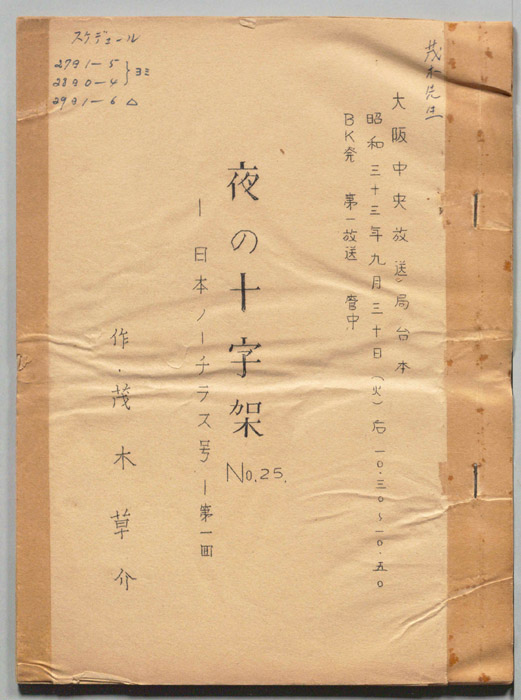 茂木先生
大阪中央放送局台本
昭和三十三年九月三十日(火)后一〇.三〇〜一〇.五〇
BK発 第一放送 管中
夜の十字架 No.25.
― 日本ノーチラス号 ― 第一回
作・茂木草介
スケデュール
279 1―5
289 0―4 }ヨミ
299 1―6 △